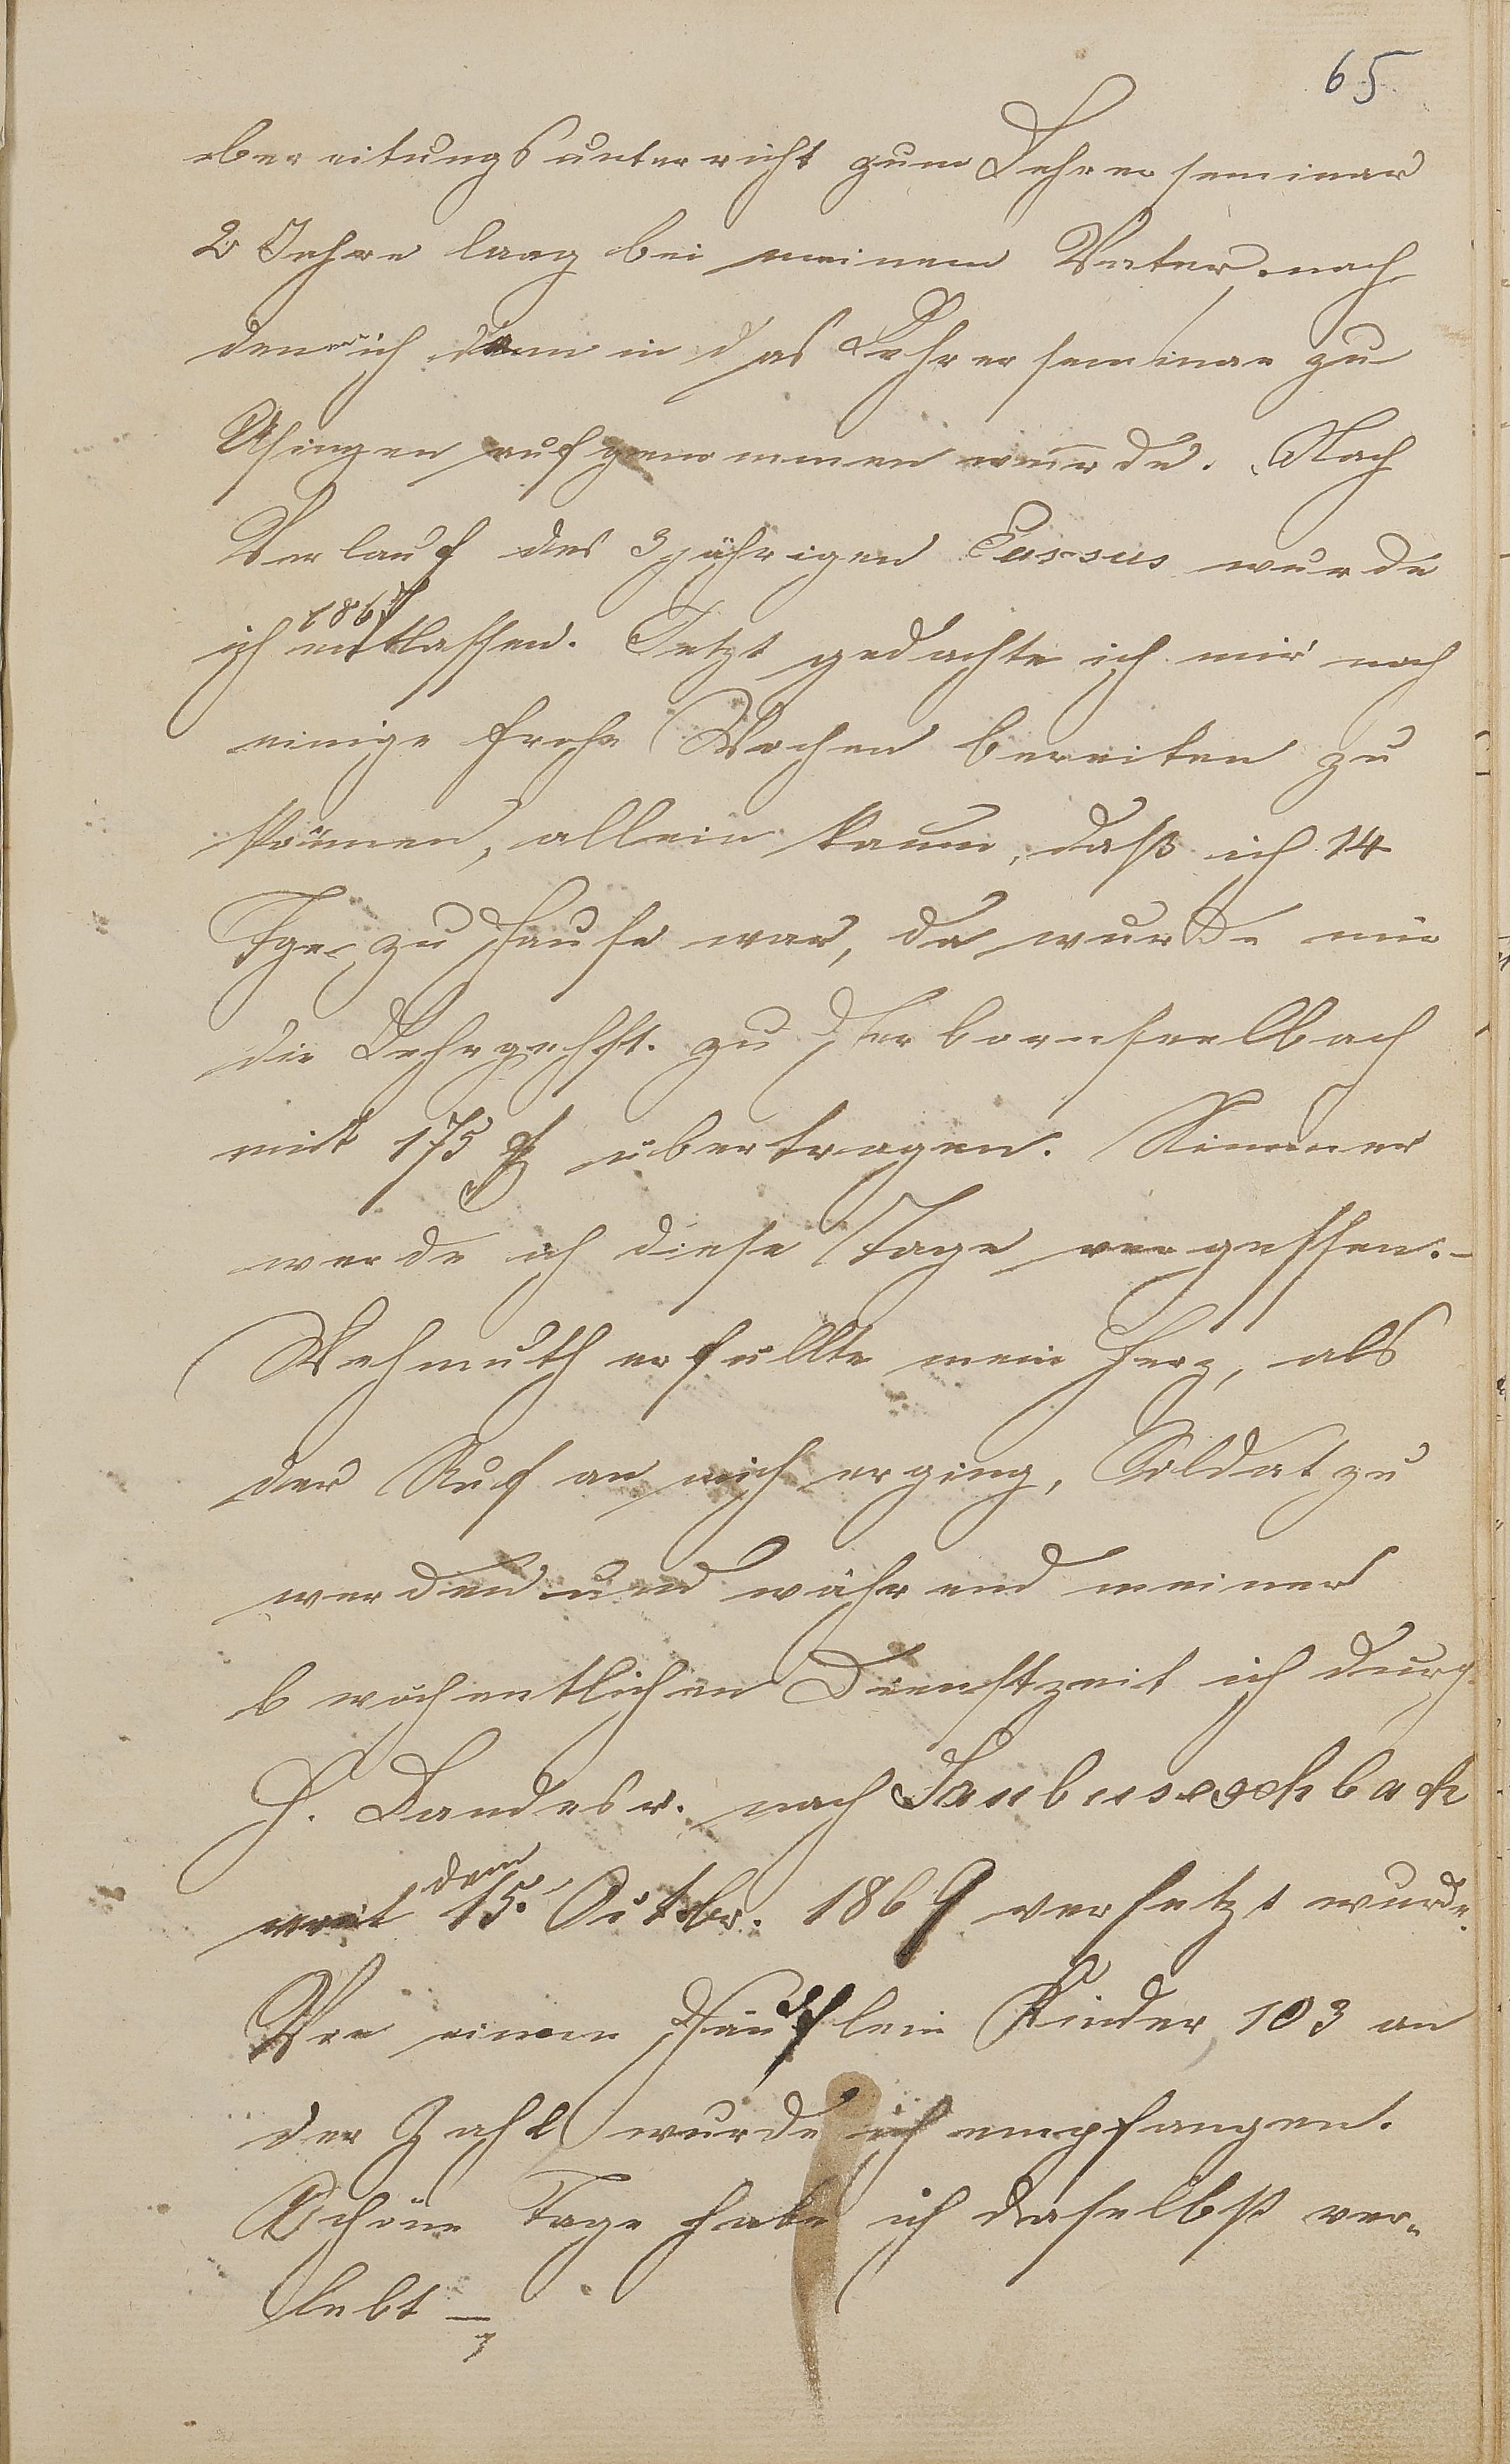 65
bereitungsunterricht zum Lehrerseminar
2 Jahre lang bei meinem Vater, nach
dem ich dann in das Lehrerseminar zu
Usingen aufgenommen wurde. Nach
Verlauf des 3jährigen Cursus wurde
1867
ich entlassen. Jetzt gedachte ich mir noch
einige frohe Wochen bereiten zu
können, allein kaum, daß ich 14
Tge zu Hause war, da wurde mir
die Lehrgehlft. zu Oberbornseelbach
mit 175 f übertragen. Nimmer
werde ich diese Tage vergessen.–
Wehmuth erfüllte mein Herz, als
der Ruf an mich erging, Soldat zu
werden und während meiner
6 wöchentlichen Dienstzeit ich durch
H. Landesr. nach Laubuseschbach
dem
mit 15. Octbr. 1869 versetzt wurde.
Von einem Häuflein Kinder, 103 an
der Zahl wurde ich empfangen.
Schöne Tage habe ich daselbst ver„
lebt –